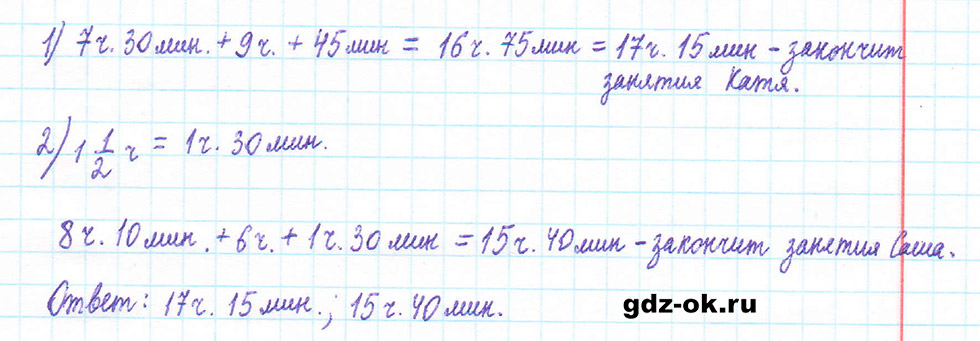 1) 7ч. 30мин. + 9ч. + 45мин = 16ч. 75мин = 17ч. 15мин - закончит
занятия Катя.
2) 1 1/2 ч = 1ч. 30мин.
8ч. 10мин. + 6ч. + 1ч. 30мин = 15ч. 40мин - закончит занятия Саша.
Ответ: 17ч. 15мин.; 15ч. 40мин.
gdz-ok.ru